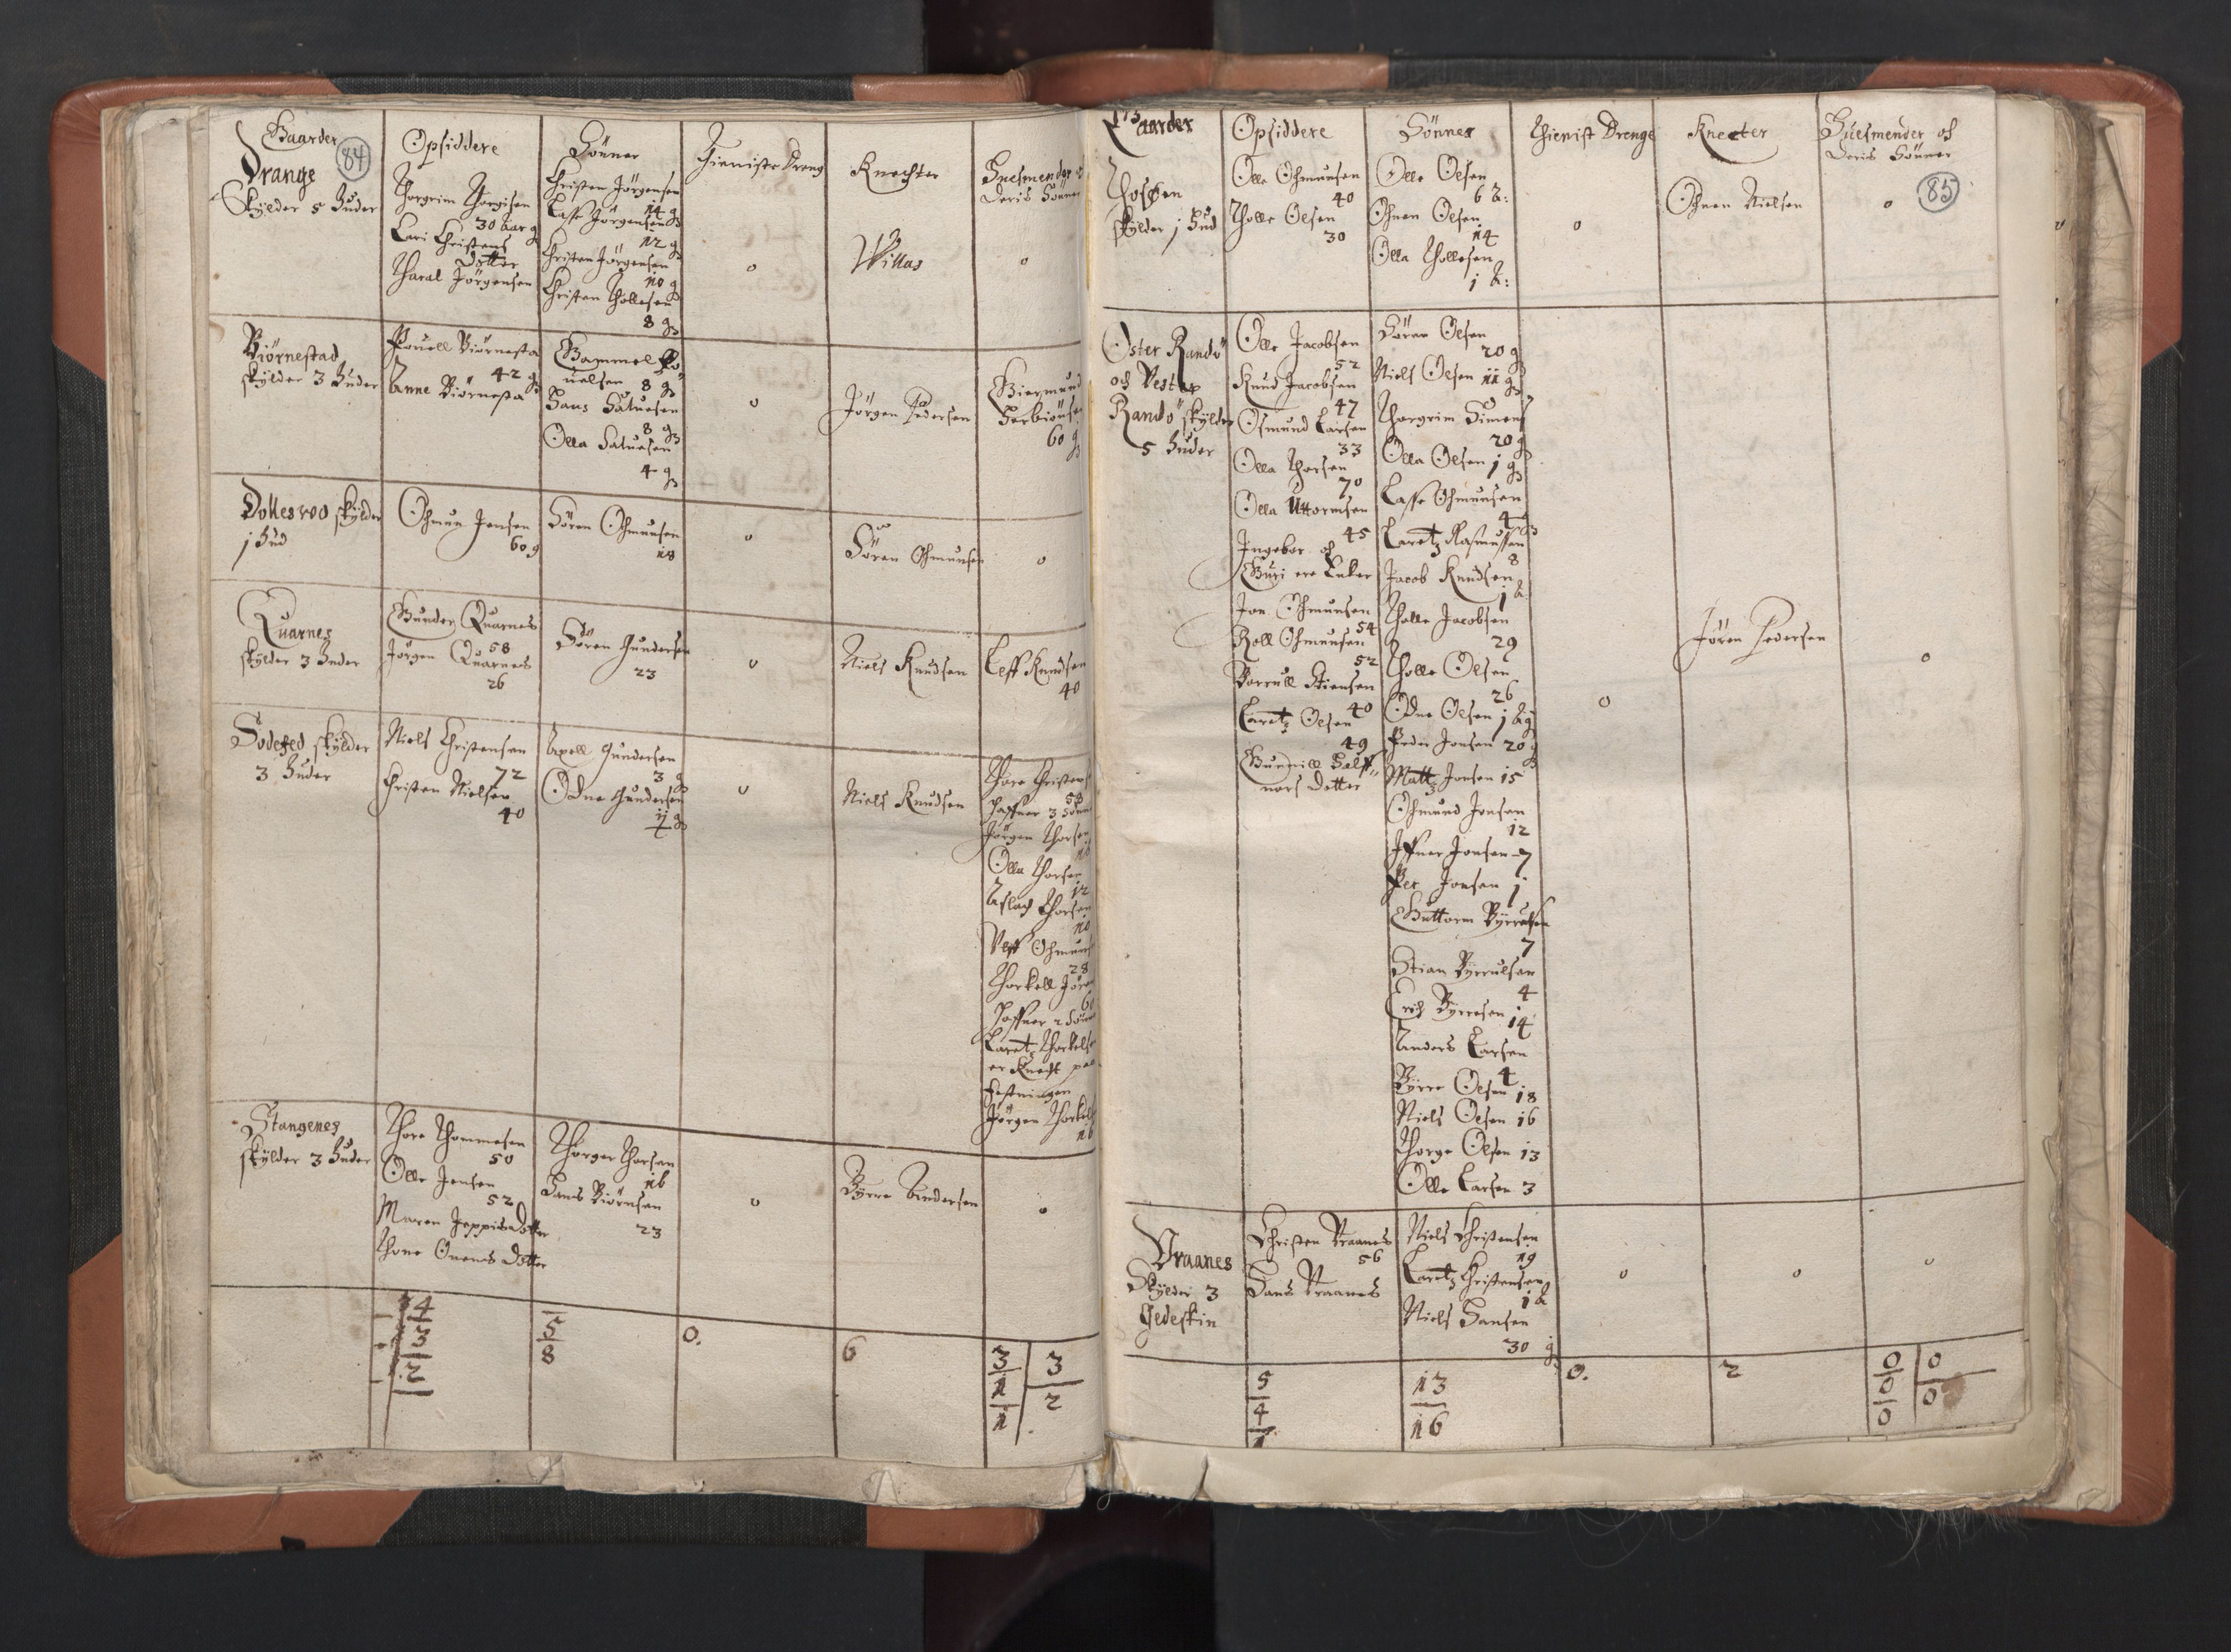 Gaarder
84
Opsiddere
Sönner
Thieniste Dreng
Knechter
Huesmender
Deris Sönner
Drange
Skylder 5 Huder
Thorgrim Thorgisen
30 aar
Kari Christens
Dotter
Tharal Jörgensen
Christen Jörgensen
14
Lasse Jörgensen
12
Christen Jörgensen
10
Christen Thollesen
8
o
Willas
o
Biörnestad
skylder 3 Huder
Pouell Biörnesta
42
Anne Biörnesta
Gammel Po
uelsen 8
Hans Saluesen
8
Olla Saluesen
4
o
Jörgen Pedersen
Giermund
60
Dollesroo skylder
j Hud
Ohmun Jensen
60
Sören Ohmunsen
18
o
Sören Ohmunsen
o
Quarnes
skylder 3 Huder
Gunder Quarnes
58
Jörgen Quarnes
26
Sören Gundersen
23
o
Niels Knudsen
Leff Knudsen
40
Sodefed skylder
3 Huder
Niels Christensen
72
Christen Nielsen
40
Axell Gundersen
3
Odne Gundersen
o
Niels Knudsen
Thore Christens
58
haffuer 3 Sönn
Jörgen Thorsen
Olla Thorsen
12
Aslach Thorsen
10
Ohmuns
28
Thorkell
60
haffuer 2 Sönn
Laretz Thorkels
er Knecht paa
festningen
Jörgen Thorkels
16
Stangenes
skylder 3 Huder
Thore Thommesen
50
Olle Jensen
52
Maren Jeppis Dotter
Thone Onens Dotter
Thorger Thorsen
16
Hans Biörnsen
23
o
Byrre Andersen
o
14
5
2
5
8
0.
6
3
1
1
3
2
Gaarder
Opsiddere
Sönner
Thienist Drenge
Knecter
Huesmender och
Deris Sönner
85
skylder j Hud
Olle Ohmunsen
40
Tholle Olsen
30
Olle Olsen
6
Ohnen Olsen
14
Olla Thollesen
1
o
Ohnen Nielsen
o
Öster Randö
och Vester
Randö skylder
5 Huder
Olle Jacobsen
52
Knud Jacobsen
47
Osmund Larsen
33
Olla Thorsen
70
Olla Uttormsen
45
Ingebor och
Guri ere Enker
Jon Ohmunsen
54
Roll Ohmunsen
52
Borrull Stiensen
40
Laretz Olsen
49
Gunnill Half
nors Dotter
Sören Olsen
20
Niels Olsen 11
Thorgrim Simens
20
Olla Olsen j
Lasse Ohmunsen
4
Laretz Rasmussen
8
Jacob Knudsen
1
Tholle Jacobsen
29
Tholle Olsen
26
Odne Olsen j
Peder Jonsen 20
Mattz Jonsen 15
Ohmund Jonsen
12
Iffuer Jonsen 7
Per Jonsen j
Guttorm Byrrulsen
7
Stian Byrrulsen
4
Erich Byrresen
14
Anders Larsen
4
Byrre Olsen 18
Niels Olsen 16
Thorge Olsen 13
Olle Larsen 3
o
Jören Pedersen
o
Vraanes
Skylder 3
Gedeskin
Christen Vraanes
56
Hans Vraanes
Niels Christensen
19
Laretz Christensen
1
Niels Hansen
30
o
o
o
5
4
1
13
16
0.
2
0
0
0
0
0